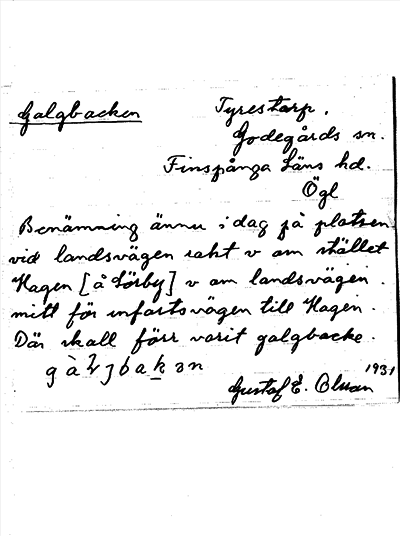 Galgbacken
Tyrestorp.
Godegårds sn.
Finspånga Läns hd.
Ögl
Benämning ännu i dag på platsen
vid landsvägen rakt v om stället
Hagen [å Sörby] v om landsvägen.
mitt för infartsvägen till Hagen.
Där skall förr varit galgbacke.
Gustaf E. Olsson 1931